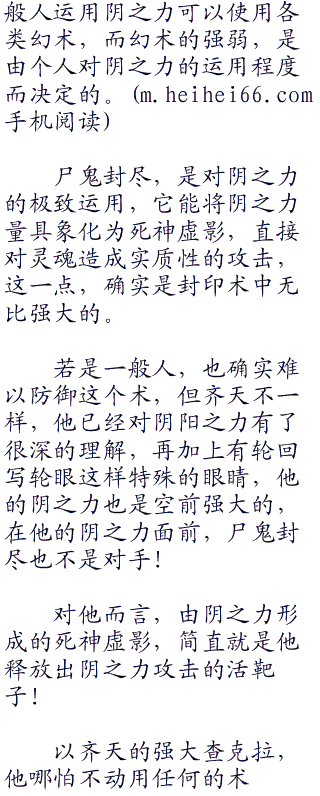 般人运用阴之力可以使用各
类幻术，而幻术的强弱，是
由个人对阴之力的运用程度
而决定的。(m.heihei66.com
手机阅读)
尸鬼封尽，是对阴之力
的极致运用，它能将阴之力
量具象化为死神虚影，直接
对灵魂造成实质性的攻击，
这一点，确实是封印术中无
比强大的。
若是一般人，也确实难
以防御这个术，但齐天不一
样，他已经对阴阳之力有了
很深的理解，再加上有轮回
写轮眼这样特殊的眼睛，他
的阴之力也是空前强大的，
在他的阴之力面前，尸鬼封
尽也不是对手!
对他而言，由阴之力形
成的死神虚影，简直就是他
释放出阴之力攻击的活靶
子!
以齐天的强大查克拉，
他哪怕不动用任何的术